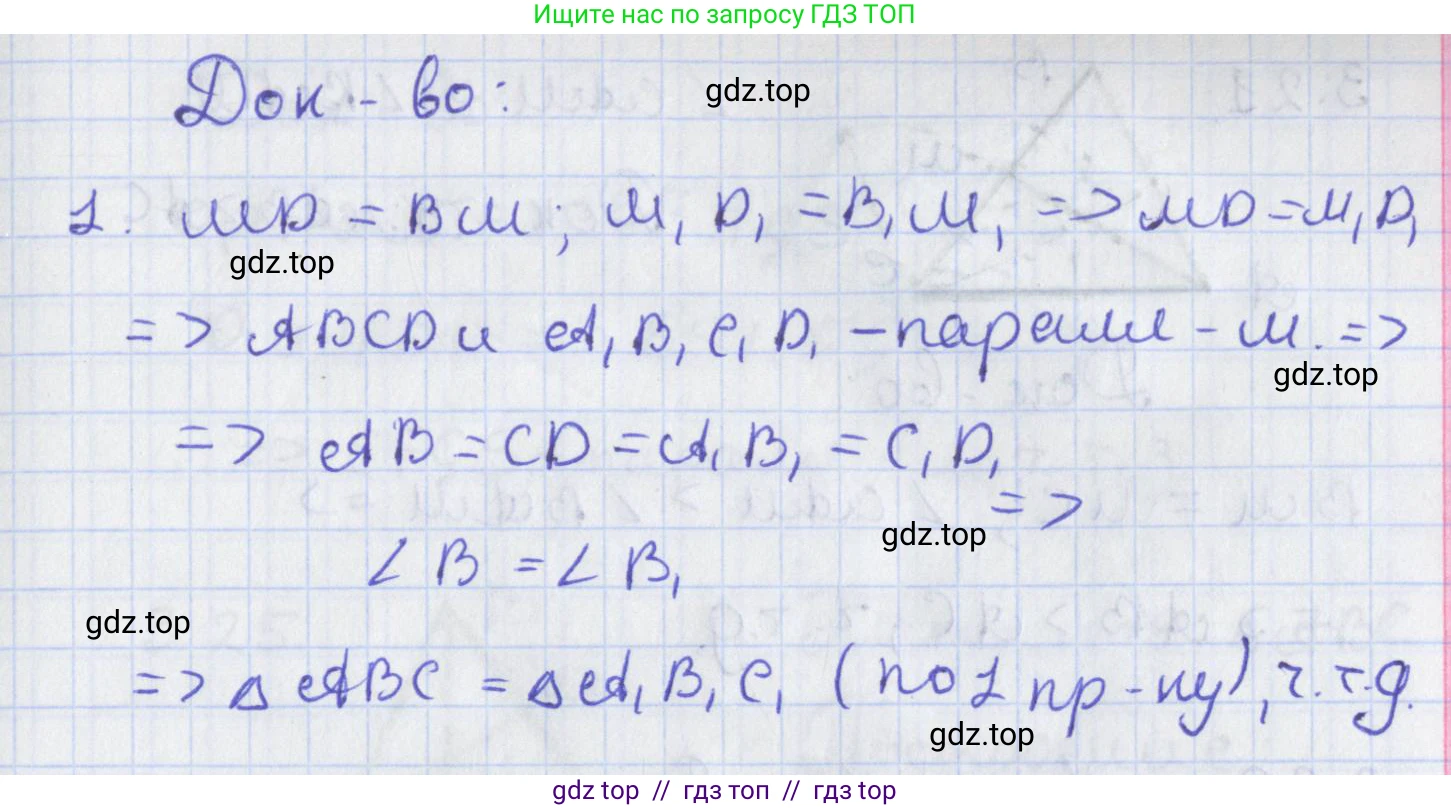 Ищите нас по запросу ГДЗ ТОП
Док-во:
gdz.top
1. MD = BM; M₁D₁ = B₁M₁ => MD = M₁D₁
gdz.top
=> ABCD и A₁B₁C₁D₁ - паралл-м. =>
gdz.top
=> AB = CD = A₁B₁ = C₁D₁
=>
gdz.top
∠B = ∠B₁
gdz.top
=> △ABC = △A₁B₁C₁ (по 1 пр-ку), ч.т.д.
gdz.top
gdz top // гдз топ // гдз top